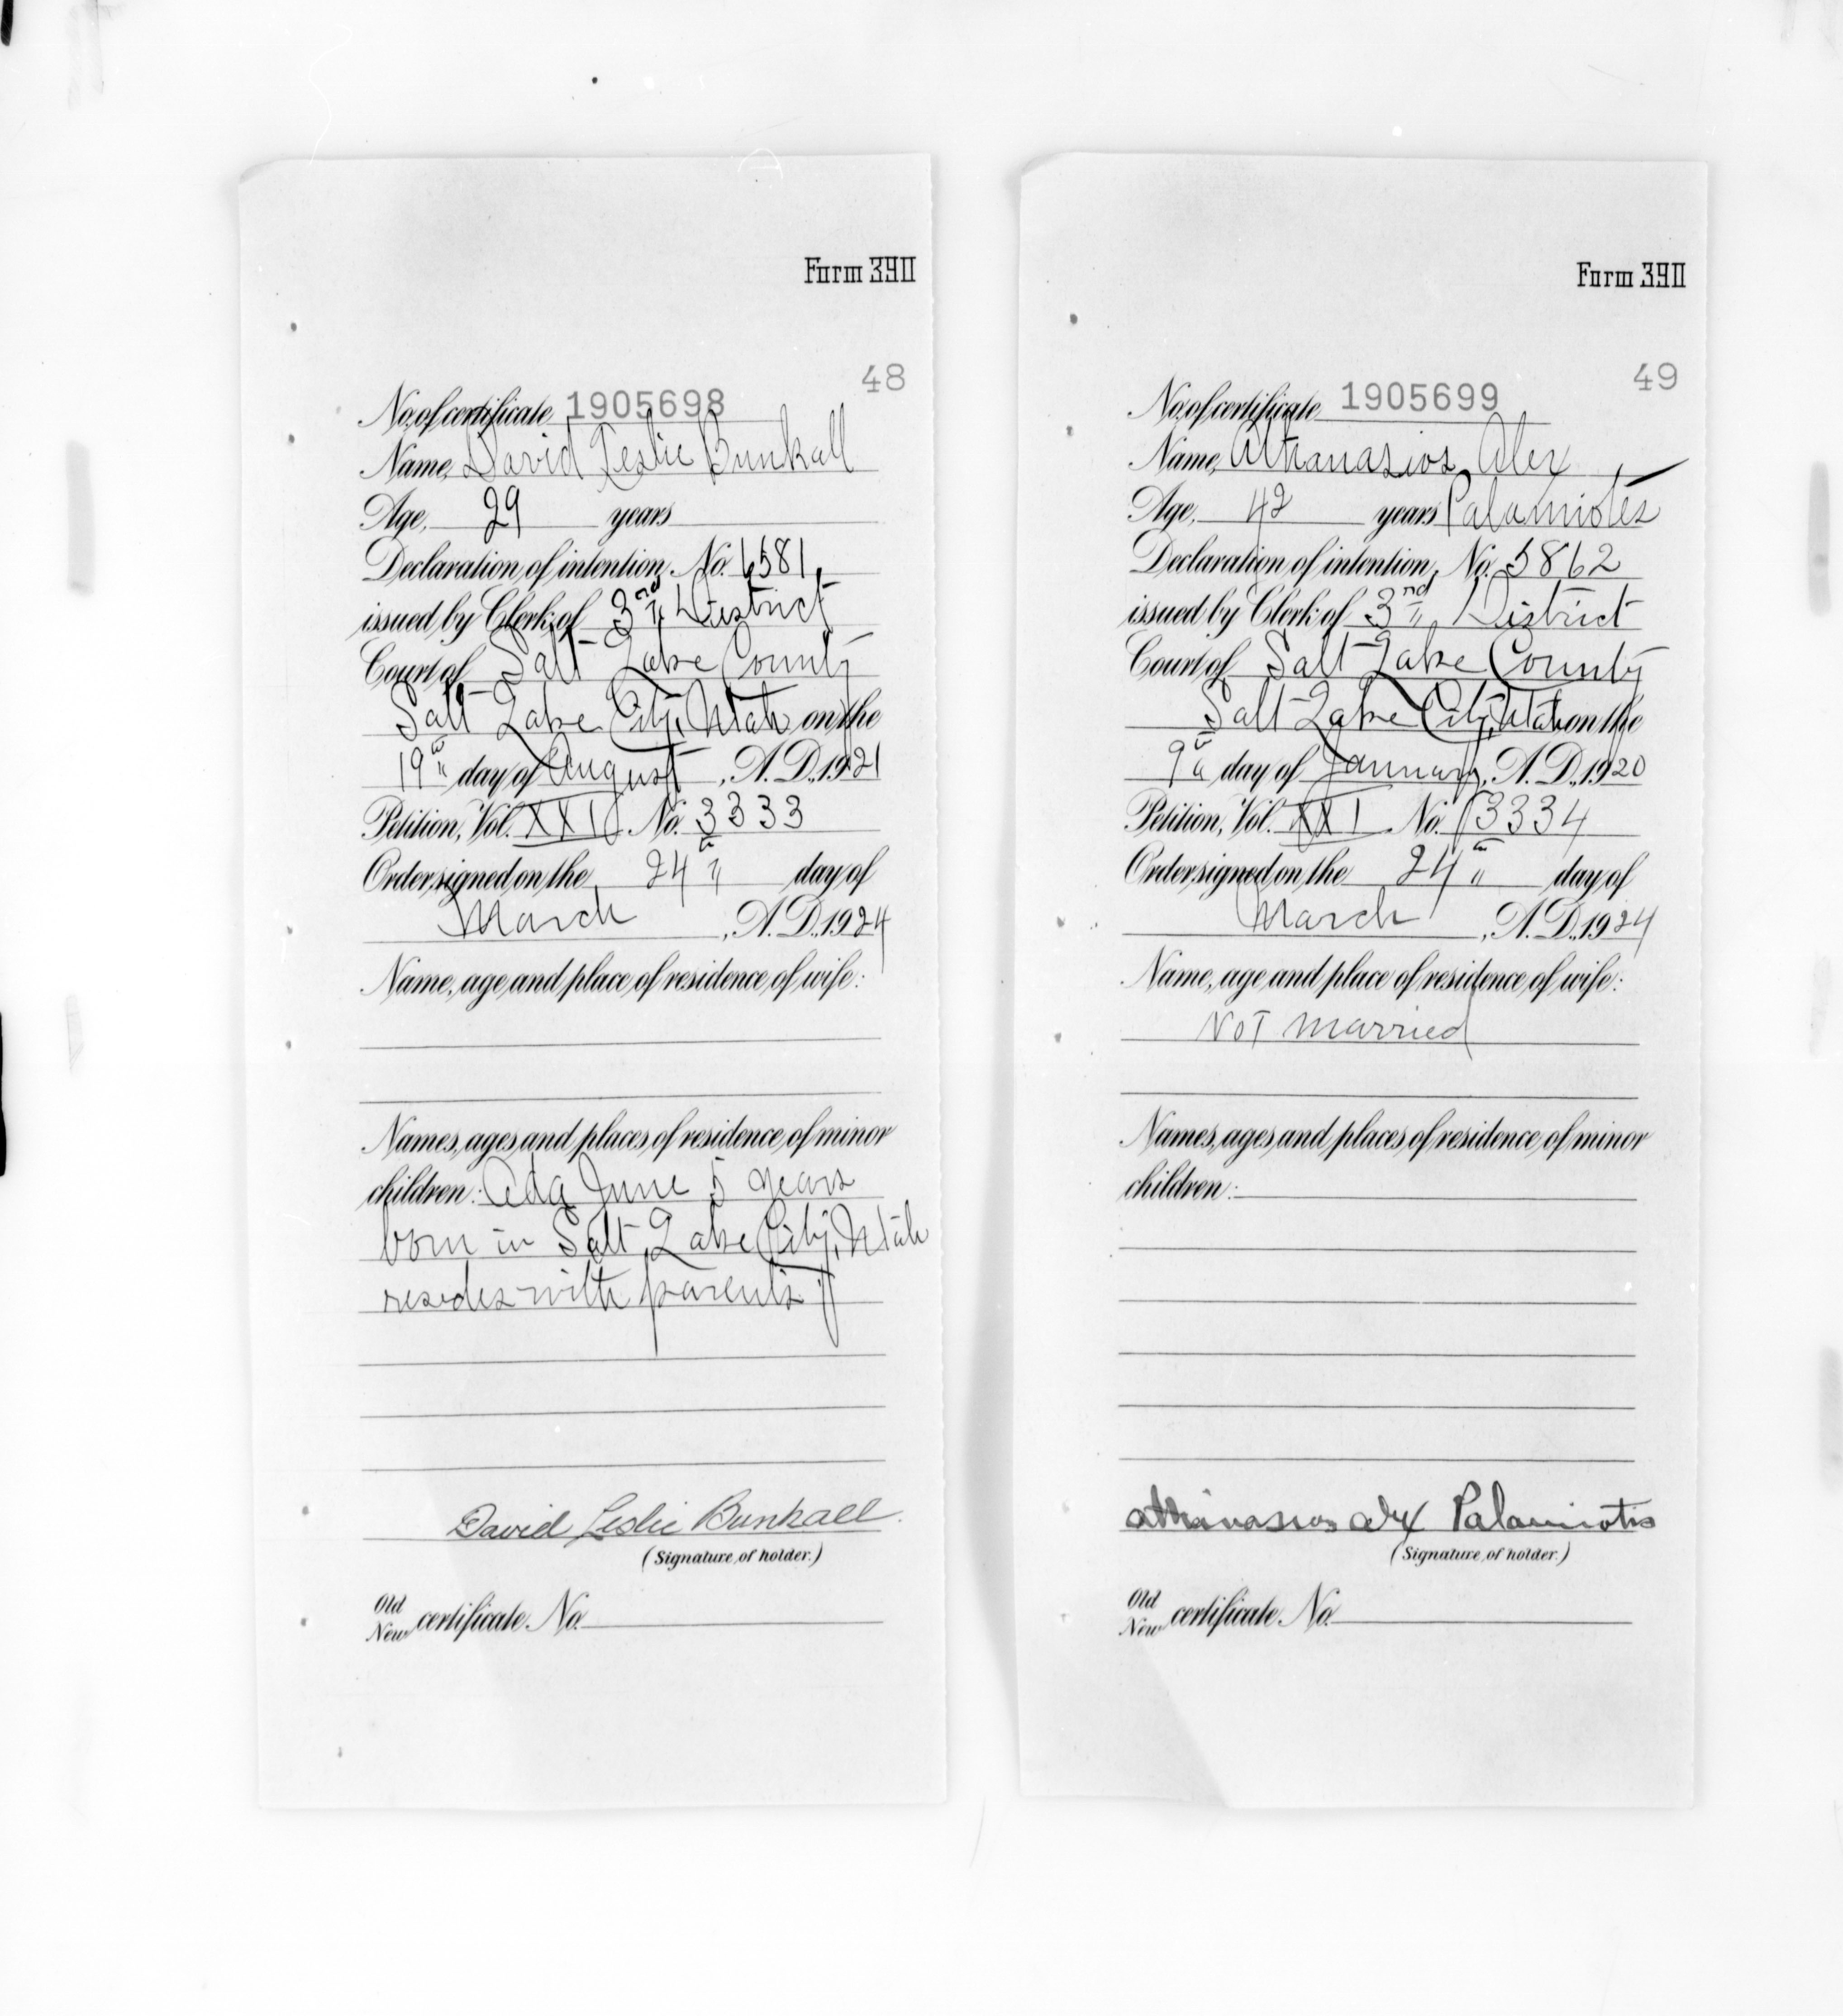 Form 390
48
No. of certificate 1905698
Name, David Leslie Bunkall
Age, 29 years
Declaration of intention, No. 6581,
issued by Clerk of 3rd District
Court of Salt Lake County
Salt Lake City, Utah on the
19th day of August, A. D., 1921
Petition, Vol. XXI No. 3333
Order signed on the 24th day of
March, A. D., 1924
Name, age and place of residence of wife:
Names, ages and places of residence of minor
children: Ada June 5 years
born in Salt Lake City, Utah
resides with parents
David Leslie Bunkall.
(Signature of holder.)
Old
New certificate No.
Form 390
49
No. of certificate 1905699
Name, Athanasios Alex
Age, 42 years Palamiotes
Declaration of intention, No. 5862
issued by Clerk of 3rd District
Court of Salt Lake County
Salt Lake City, Utah on the
9th day of January, A. D., 1920
Petition, Vol. XXI No. 3334
Order signed on the 24th day of
March, A. D., 1924
Name, age and place of residence of wife:
Not married
Names, ages and places of residence of minor
children:
Athanasios Alex Palamiotis
(Signature of holder.)
Old
New certificate No.